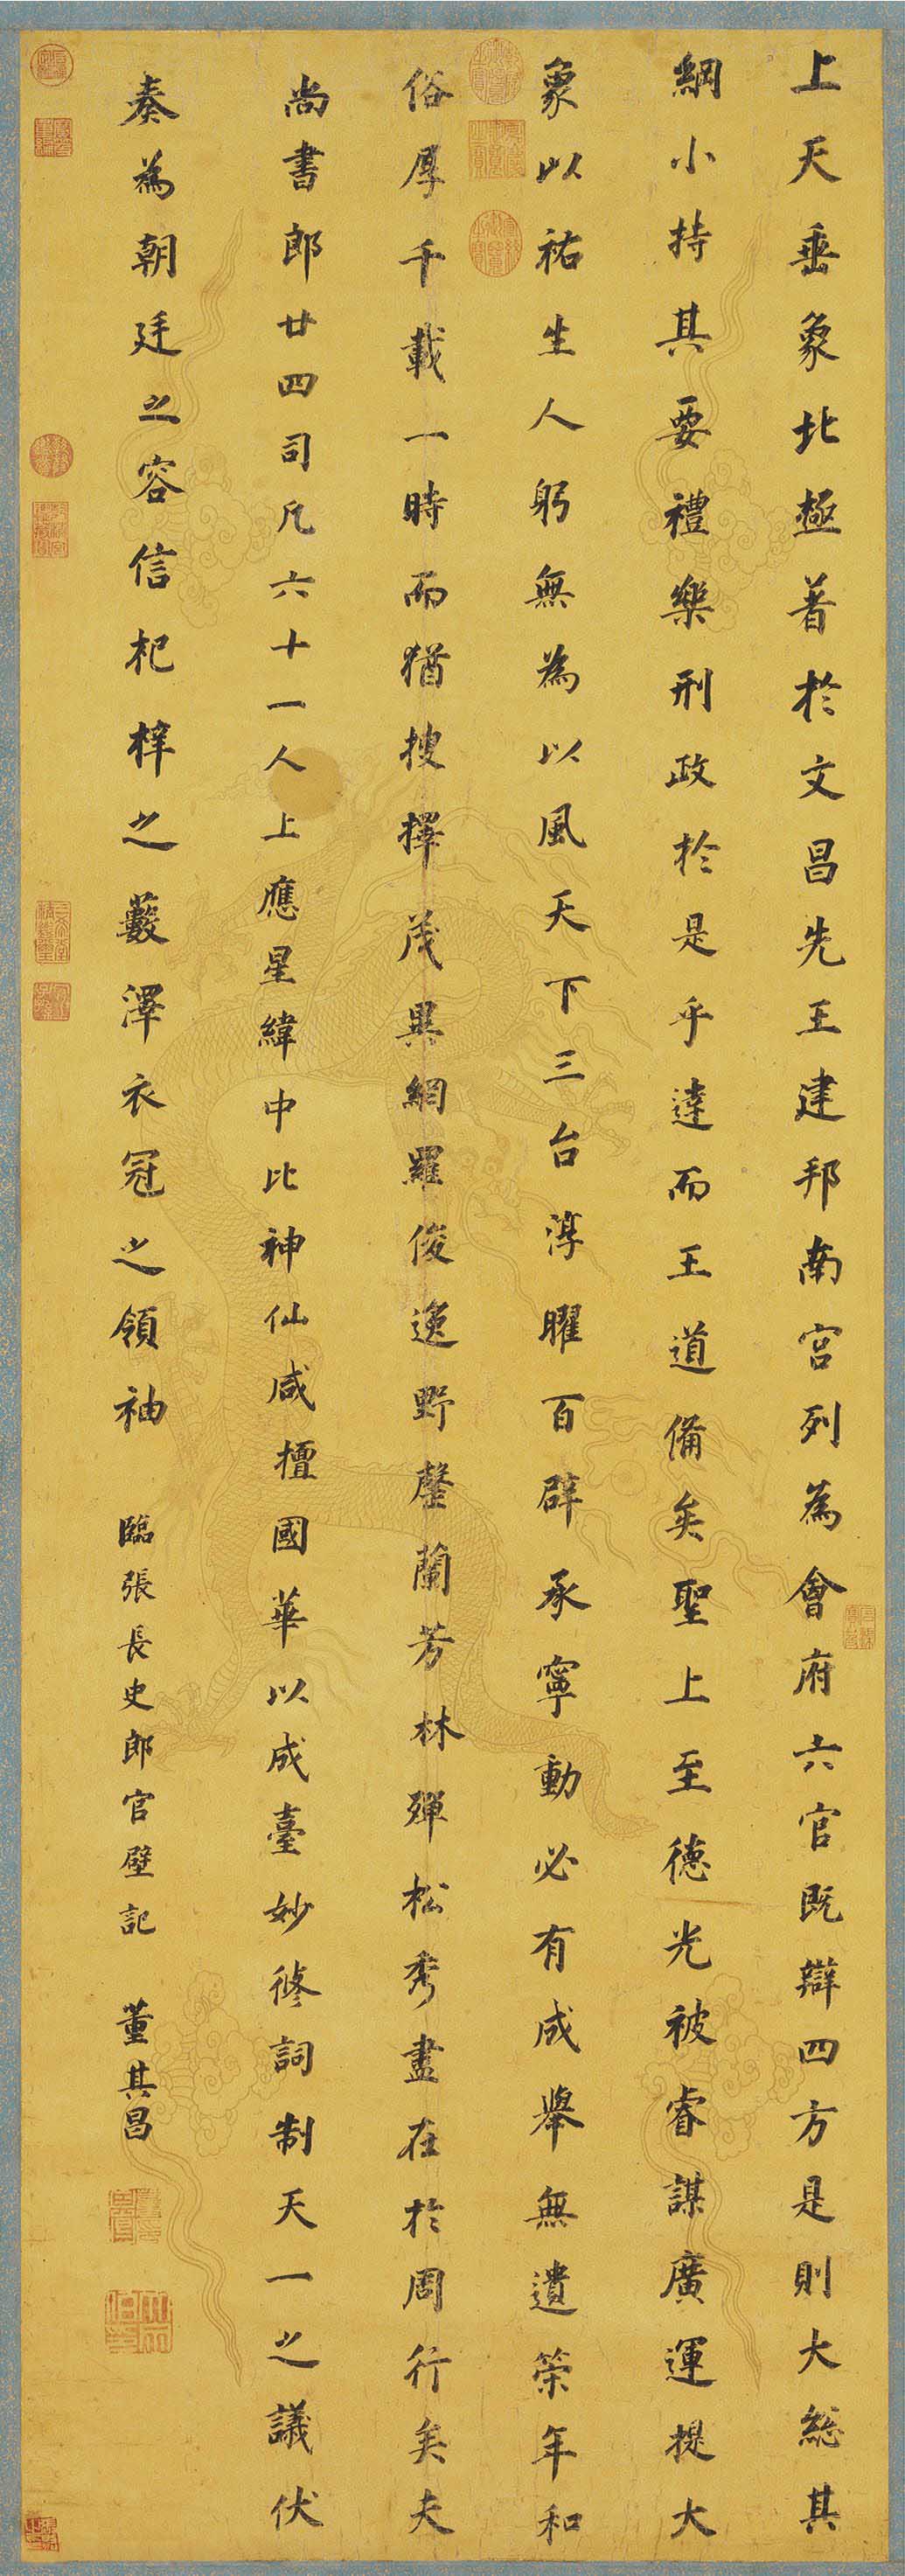 上天垂象北極著於文昌先王建邦南宮列為會府六官既辯四方是則大総其
綱小持其要禮樂刑政於是乎達而王道備矣聖上至德光被睿謀廣運提大
象以祐生人躬無為以風天下三台淳曜百辟承寧動必有成舉無遺策年和
俗厚千載一時而猶搜擇茂異網羅俊逸野罄蘭芳林殫松秀盡在於周行矣夫
尚書郎廿四司凡六十一人上應星緯中比神仙咸擅國華以成臺妙修詞制天一之議伏
奏為朝廷之容信杞梓之藪澤衣冠之領袖 臨張長史郎官壁記 董其昌